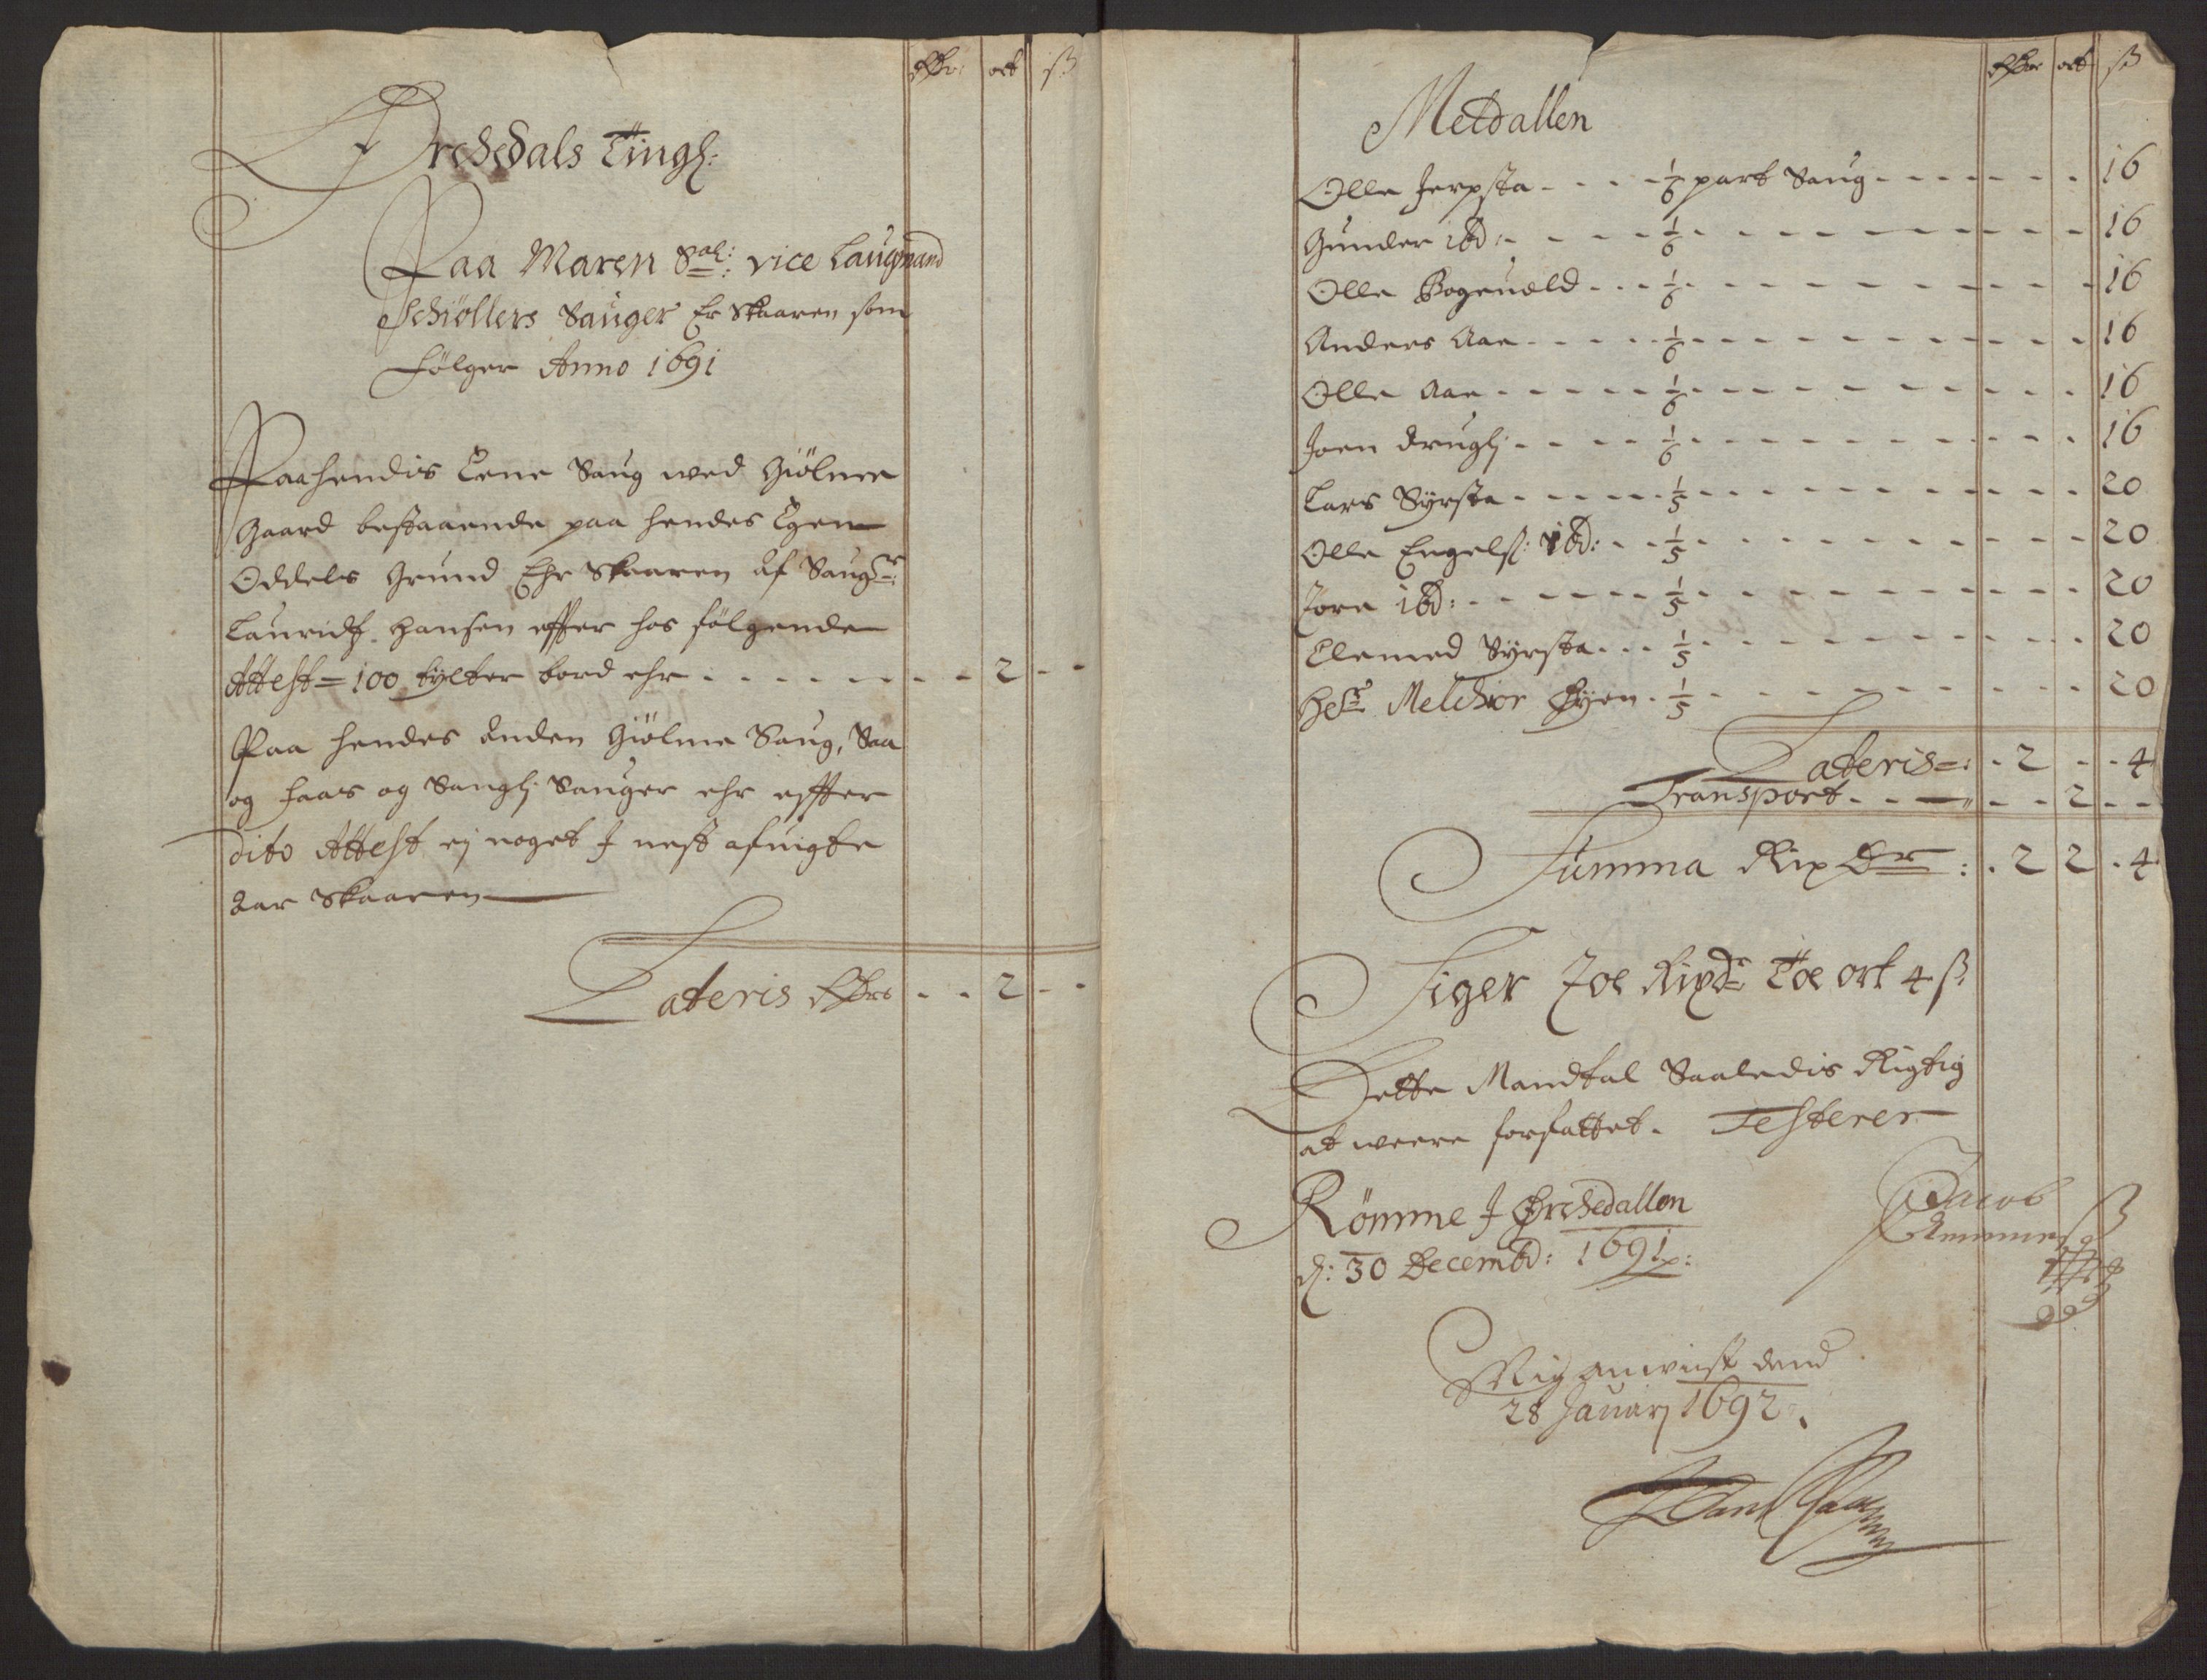 Rdr: ort ß
Orchedals Tingl:
Paa Maren Sal: vice Laugmand
Schiöllers Sauger Er Skaaren som
Fölger Anno 1691
Paa hendis Eene Saug wed Giölme
Gaard bestaaende paa hendes Egen
Oddels Grund Ehr Skaaren af Saugr:
Lauridtz Hansen effter hos fölgende
Attest = 100 tylter bord ehr - - - - - - - 2 - -
Paa hendes Anden Giölme Saug, Saa
og Faas og Saugl: Sauger ehr effter
dito Attest ej noget J nest afuigte
Aar Skaaren
Lateris Rdr - - 2 - -
Rdr ort ß
Meldallen
Olle Jerpsta - - - - 1/6 part Saug - - - - - - - 16
Gunder ibd: - - - - 1/6 - - - - - - - - - - 16
Olle Bogeuold - - - 1/6 - - - - - - - - - - 16
Anders Aae - - - - - 1/6 - - - - - - - - - - 16
Olle Aae - - - - - 1/6 - - - - - - - - - - 16
Joen Drugl: - - - - 1/6 - - - - - - - - - - 16
Lars Syrsta - - - - - 1/5 - - - - - - - - - - 20
Olle Engels: ibd: - - 1/5 - - - - - - - - - - 20
Tore ibd: - - - - - - 1/5 - - - - - - - - - - 20
Clemed Syrsta - - - 1/5 - - - - - - - - - - 20
Hr Melchior Øyen - 1/5 - - - - - - - - - - 20
Lateris =: - 2 - - 4
Transport - - - - - 2 - -
Summa Rix Dr: - 2 2 - 4
Siger Toe Rixdr Toe ort 4 ß
Dette Mandtal Saaledis Rigtig
at weere forfattet. Testerer
Römme J Orchedallen
d: 30 Decembd: 1691
Jacob
Mig anwiist dend
28 Januarj 1692.